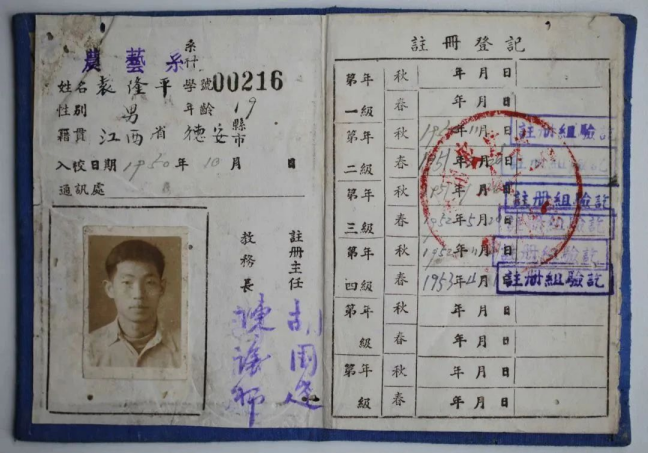 農藝系
系科
姓名 袁隆平 學號 00216
性別 男 年齡 19
籍貫 江西省 德安 縣市
入校日期 1950年 10月 日
通訊處
註冊主任
教務長
註冊登記
第一年級 秋 年 月 日
春 年 月 日
第二年級 秋 年11月 日 註冊組驗訖
春 1951年 月 日
第三年級 秋 年 月 日 註冊組驗訖
春 1952年5月 日 註冊組驗訖
第四年級 秋 1952年11月 日 註冊組驗訖
春 1953年4月 日 註冊組驗訖
第 年級 秋 年 月 日
春 年 月 日
第 年級 秋 年 月 日
春 年 月 日